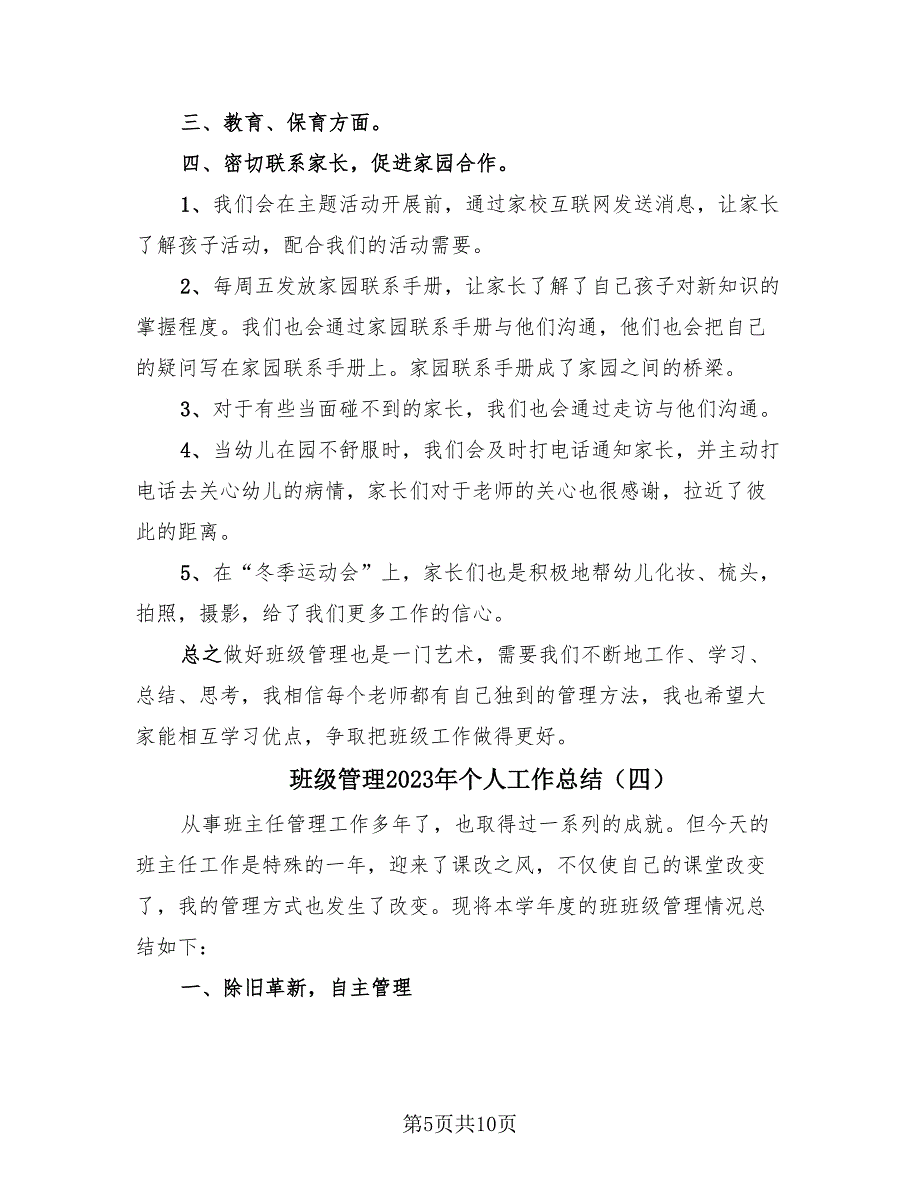 三、教育、保育方面。
四、密切联系家长，促进家园合作。
1、我们会在主题活动开展前，通过家校互联网发送消息，让家长
了解孩子活动，配合我们的活动需要。
2、每周五发放家园联系手册，让家长了解了自己孩子对新知识的
掌握程度。我们也会通过家园联系手册与他们沟通，他们也会把自己
的疑问写在家园联系手册上。家园联系手册成了家园之间的桥梁。
3、对于有些当面碰不到的家长，我们也会通过走访与他们沟通。
4、当幼儿在园不舒服时，我们会及时打电话通知家长，并主动打
电话去关心幼儿的病情，家长们对于老师的关心也很感谢，拉近了彼
此的距离。
5、在“冬季运动会”上，家长们也是积极地帮幼儿化妆、梳头，
拍照，摄影，给了我们更多工作的信心。
总之做好班级管理也是一门艺术，需要我们不断地工作、学习、
总结、思考，我相信每个老师都有自己独到的管理方法，我也希望大
家能相互学习优点，争取把班级工作做得更好。
班级管理2023年个人工作总结（四）
从事班主任管理工作多年了，也取得过一系列的成就。但今天的
班主任工作是特殊的一年，迎来了课改之风，不仅使自己的课堂改变
了，我的管理方式也发生了改变。现将本学年度的班班级管理情况总
结如下：
一、除旧革新，自主管理
第5页共10页